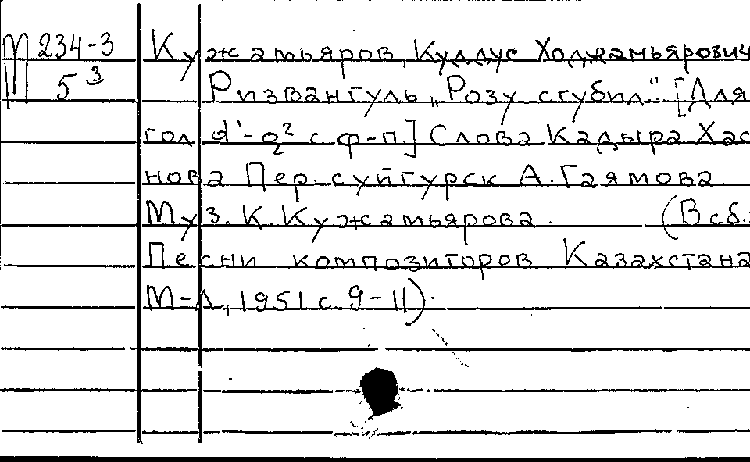 М 234-3 Кужамьяров, Куддус Ходжамьярович
5³ Ризвангуль „Розу сгубил." [Для
гол d¹-g² с ф-п.] Слова Кадыра Хас
нова Пер. с уйгурск А. Гаямова
Муз. К. Кужамьярова. (В сб.
Песни композиторов Казахстана
М-Л, 1951 с. 9-11).